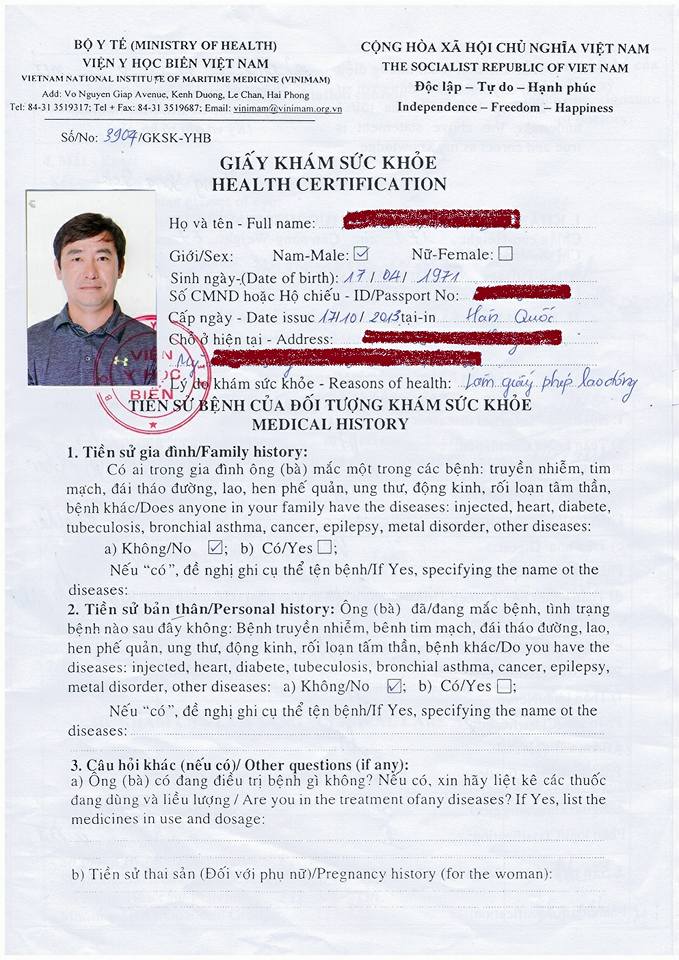 BỘ Y TẾ (MINISTRY OF HEALTH)
VIỆN Y HỌC BIỂN VIỆT NAM
VIETNAM NATIONAL INSTITUTE OF MARITIME MEDICINE (VINIMAM)
Add: Vo Nguyen Giap Avenue, Kenh Duong, Le Chan, Hai Phong
Tel: 84-31 3519317; Tel + Fax: 84-31 3519687; Email: vinimam@vinimam.org.vn
Số/No: 3907/GKSK-YHB
CỘNG HÒA XÃ HỘI CHỦ NGHĨA VIỆT NAM
THE SOCIALIST REPUBLIC OF VIET NAM
Độc lập – Tự do – Hạnh phúc
Independence – Freedom – Happiness
GIẤY KHÁM SỨC KHỎE
HEALTH CERTIFICATION
Họ và tên - Full name:
Giới/Sex: Nam-Male: ☑ Nữ-Female: ☐
Sinh ngày-(Date of birth): 17/04/1971
Số CMND hoặc Hộ chiếu - ID/Passport No:
Cấp ngày - Date issuc 17/10/2013 tại-in Hàn Quốc
Chỗ ở hiện tại - Address:
My
Lý do khám sức khỏe - Reasons of health: Làm giấy phép lao động
VIỆN
Y HỌC
BIỂN
TIỀN SỬ BỆNH CỦA ĐỐI TƯỢNG KHÁM SỨC KHỎE
MEDICAL HISTORY
1. Tiền sử gia đình/Family history:
Có ai trong gia đình ông (bà) mắc một trong các bệnh: truyền nhiễm, tim
mạch, đái tháo đường, lao, hen phế quản, ung thư, động kinh, rối loạn tâm thần,
bệnh khác/Does anyone in your family have the diseases: injected, heart, diabete,
tubeculosis, bronchial asthma, cancer, epilepsy, metal disorder, other diseases:
a) Không/No ☑; b) Có/Yes ☐;
Nếu “có”, đề nghị ghi cụ thể tện bệnh/If Yes, specifying the name ot the
diseases:
2. Tiền sử bản thân/Personal history: Ông (bà) đã/đang mắc bệnh, tình trạng
bệnh nào sau đây không: Bệnh truyền nhiễm, bênh tim mạch, đái tháo đường, lao,
hen phế quản, ung thư, động kinh, rối loạn tấm thần, bệnh khác/Do you have the
diseases: injected, heart, diabete, tubeculosis, bronchial asthma, cancer, epilepsy,
metal disorder, other diseases: a) Không/No ☑; b) Có/Yes ☐;
Nếu “có”, đề nghị ghi cụ thể tện bệnh/If Yes, specifying the name ot the
diseases:
3. Câu hỏi khác (nếu có)/ Other questions (if any):
a) Ông (bà) có đang điều trị bệnh gì không? Nếu có, xin hãy liệt kê các thuốc
đang dùng và liều lượng / Are you in the treatment ofany diseases? If Yes, list the
medicines in use and dosage:
b) Tiền sử thai sản (Đối với phụ nữ)/Pregnancy history (for the woman):